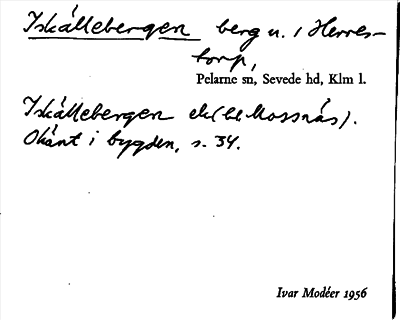 Iskällebergen berg u. 1 Herres-
torp,
Pelarne sn, Sevede hd, Klm l.
Iskällebergen ek( bl. Mossnäs).
Okänt i bygden, s. 34.
Ivar Modéer 1956